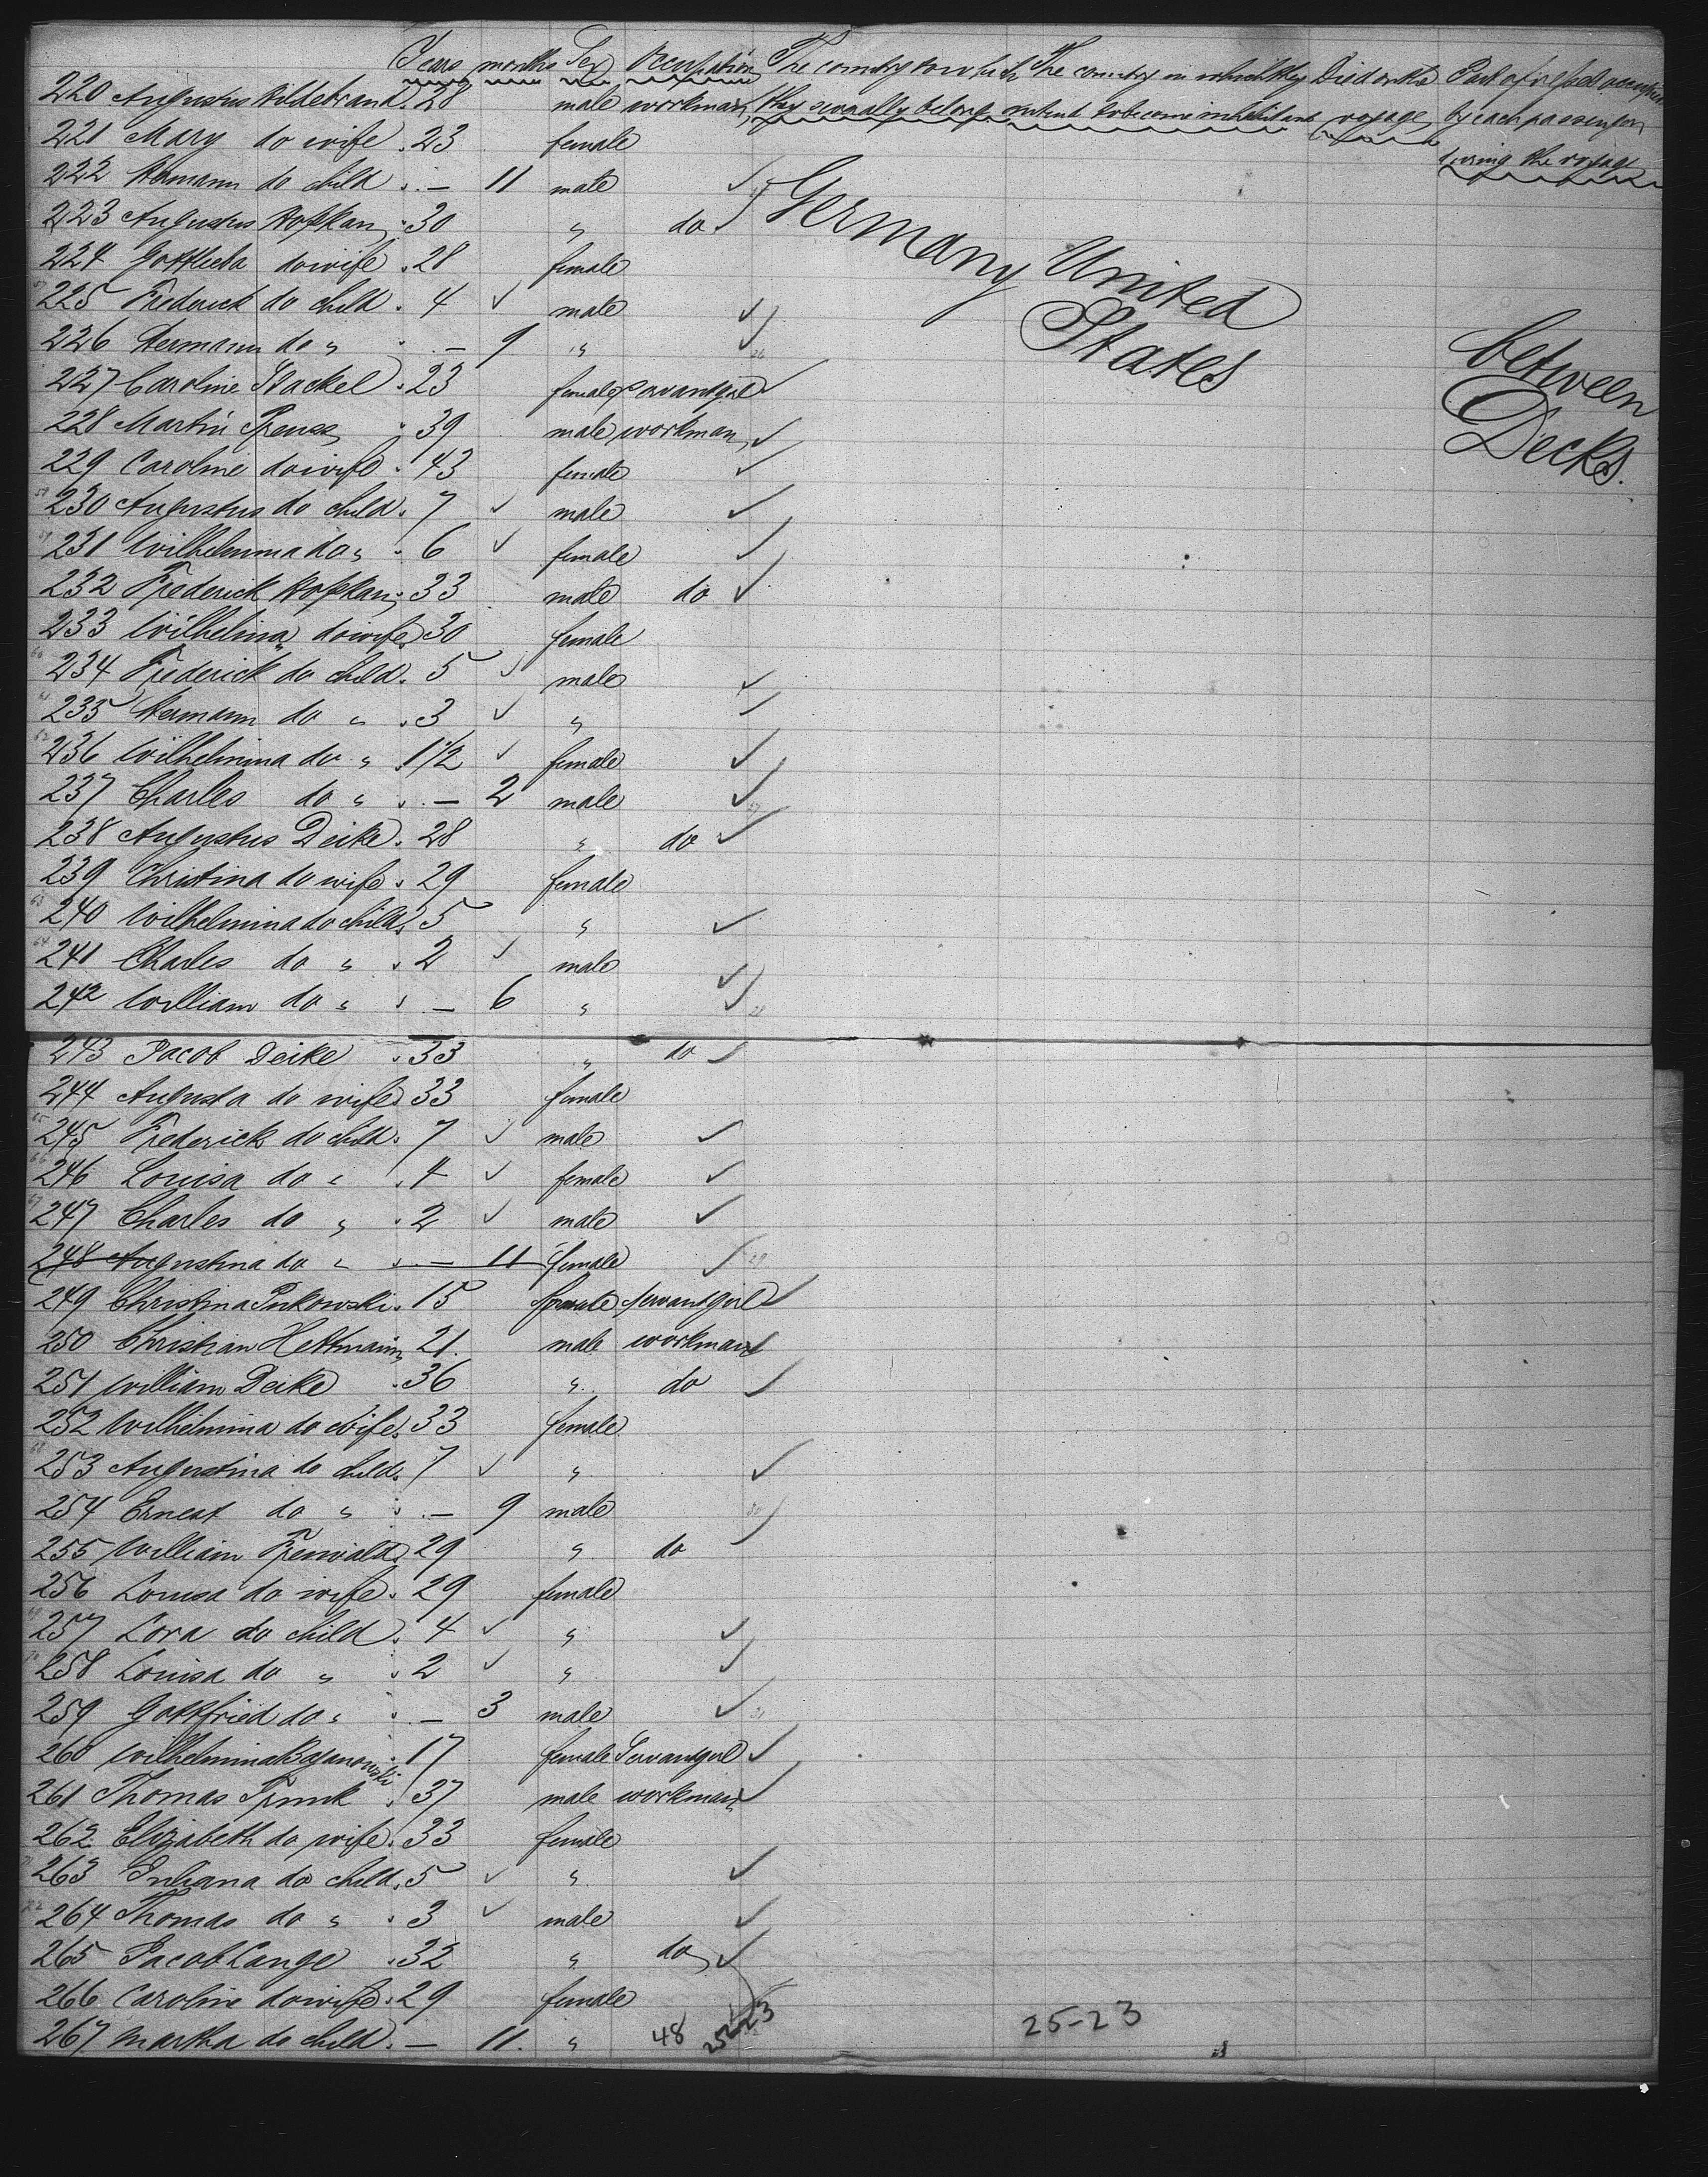 Years months Sex Occupation The country to which The country in which they Died on the Part of vessel occupied
they severally belong intend to become inhabitants voyage by each passenger
during the voyage
220 Augustus Hildebrand 28 male workman
221 Mary do wife 23 female
222 Hermann do child — 11 male
223 Augustus 30 " do
224 do wife 28 female
225 Frederick do child 4 male
226 Hermann do " — 9 "
227 Caroline Stackel 23 female servantgirl
228 Martin 39 male workman
229 Caroline do wife 43 female
230 Augustus do child 7 male
231 Wilhelmina do " 6 female
232 Frederick 33 male do
233 Wilhelmina do wife 30 female
234 Frederick do child 5 male
235 Hermann do " 3 "
236 Wilhelmina do " 1 1/2 female
237 Charles do " — 2 male
238 Augustus Deike 28 " do
239 Christina do wife 29 female
240 Wilhelmina do child 5 "
241 Charles do " 2 male
242 William do " — 6 "
Germany United
States
between
Decks.
243 Jacob Deike 33 " do
244 Augusta do wife 33 female
245 Frederick do child 7 male
246 Louisa do " 4 female
247 Charles do " 2 male
248 Augustina do " — 11 female
249 Christina 15 female servantgirl
250 Christian Hettmann 21 male workman
251 William Deike 36 " do
252 Wilhelmina do wife 33 female
253 Augustina do child 7 "
254 Ernest do " — 9 male
255 William 29 " do
256 Louisa do wife 29 female
257 Lora do child 4 "
258 Louisa do " 2 "
259 Gottfried do " — 3 male
260 Wilhelmina 17 female Servantgirl
261 Thomas 37 male workman
262 Elizabeth do wife 33 female
263 do child 5 "
264 Thomas do " 3 male
265 Jacob Lange 32 " do
266 Caroline do wife 29 female
267 Martha do child — 11. " 48 25-23 25-23